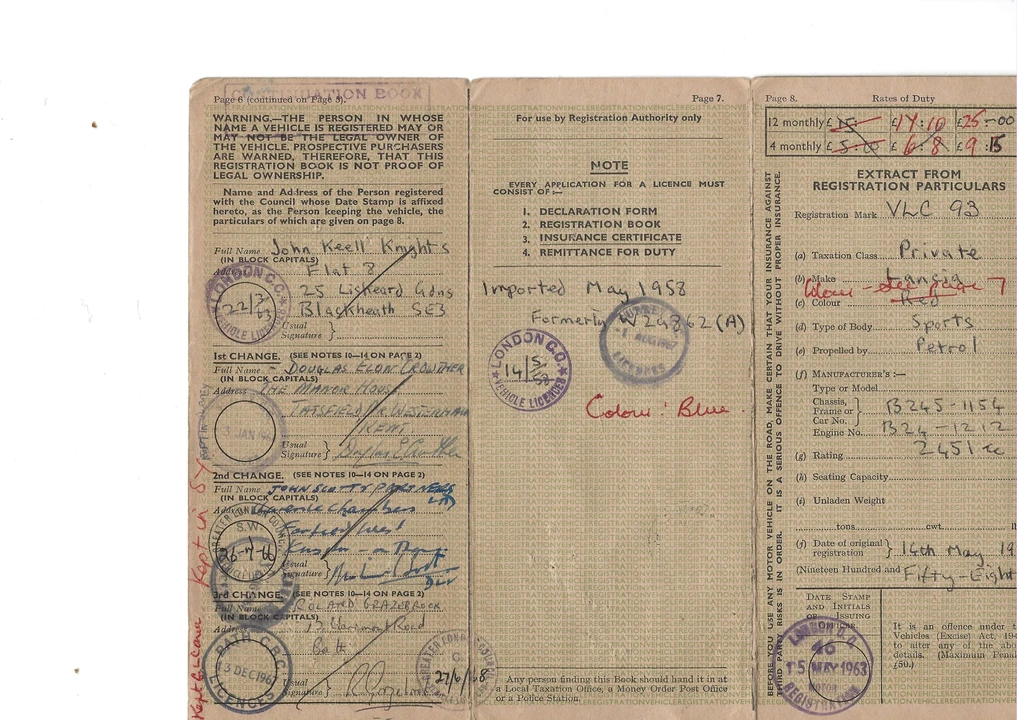 CONTINUATION BOOK
Page 6 (continued on Page 3).
WARNING.—THE PERSON IN WHOSE
NAME A VEHICLE IS REGISTERED MAY OR
MAY NOT BE THE LEGAL OWNER OF
THE VEHICLE. PROSPECTIVE PURCHASERS
ARE WARNED, THEREFORE, THAT THIS
REGISTRATION BOOK IS NOT PROOF OF
LEGAL OWNERSHIP.
Name and Address of the Person registered
with the Council whose Date Stamp is affixed
hereto, as the Person keeping the vehicle, the
particulars of which are given on page 8.
Full Name John Keell Knights
(IN BLOCK CAPITALS)
Address Flat 8
25 Liskeard Gdns
Blackheath SE3
Usual
Signature }
LONDON C.C.
22/3/63
VEHICLE LICENCES
1st CHANGE. (SEE NOTES 10—14 ON PAGE 2)
Full Name - DOUGLAS ELON CROWTHER
(IN BLOCK CAPITALS)
Address THE MANOR HOUSE
TATSFIELD Nr WESTERHAM
KENT
Usual
Signature }
3 JAN 196
2nd CHANGE. (SEE NOTES 10—14 ON PAGE 2)
Full Name JOHN SCOTT & PARTNERS
(IN BLOCK CAPITALS)
Address Chambers
Usual
Signature }
GREATER LONDON COUNCIL
S.W.
26-7-66
3rd CHANGE. (SEE NOTES 10—14 ON PAGE 2)
Full Name ROLAND GRAZEBROOK
(IN BLOCK CAPITALS)
Address Road
Bath
Usual
Signature }
BATH C.B.C.
13 DEC 196
LICENCES
GREATER LONDON COUNCIL
27/6/68
Kept in
Page 7.
For use by Registration Authority only
NOTE
EVERY APPLICATION FOR A LICENCE MUST
CONSIST OF :—
1. DECLARATION FORM
2. REGISTRATION BOOK
3. INSURANCE CERTIFICATE
4. REMITTANCE FOR DUTY
Imported May 1958
Formerly W24862 (A)
1 AUG 1967
LICENCES
LONDON C.C.
14/5/58
VEHICLE LICENCES
Colour : Blue.
Any person finding this Book should hand it in at
a Local Taxation Office, a Money Order Post Office
or a Police Station.
Page 8. Rates of Duty
12 monthly £15: £17:10 £25-00
4 monthly £5:10 £6:8 £9:15
BEFORE YOU USE ANY MOTOR VEHICLE ON THE ROAD, MAKE CERTAIN THAT YOUR INSURANCE AGAINST
THIRD PARTY RISKS IS IN ORDER. IT IS A SERIOUS OFFENCE TO DRIVE WITHOUT PROPER INSURANCE.
EXTRACT FROM
REGISTRATION PARTICULARS
Registration Mark VLC 93
(a) Taxation Class Private
(b) Make Lancia
Colour - see page 7
(c) Colour Red
(d) Type of Body Sports
(e) Propelled by Petrol
(f) MANUFACTURER'S :—
Type or Model
Chassis,
Frame or }
Car No. B24S-1154
Engine No. B24-1212
(g) Rating 2451 cc
(h) Seating Capacity
(i) Unladen Weight
tons cwt.
(j) Date of original
registration } 14th May 19
(Nineteen Hundred and Fifty-Eight
DATE STAMP
AND INITIALS
OF ISSUING
OFFICER.
LONDON C.C.
46
15 MAY 1963
MOTOR
REGISTRATION
It is an offence under t
Vehicles (Excise) Act, 194
to alter any of the abo
details. (Maximum Penal
£50.)